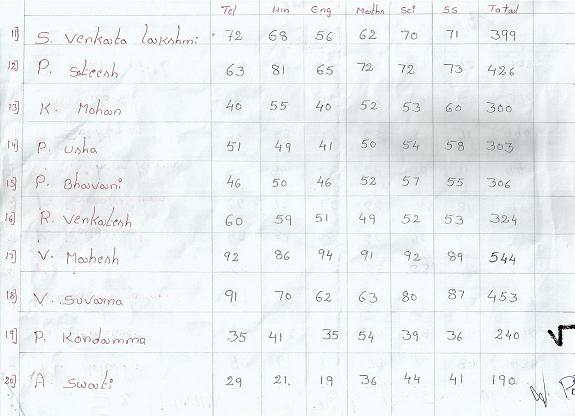 Tel Hin Eng Maths Sci SS Total
11] S. Venkata lakshmi 72 68 56 62 70 71 399
12] P. Sateesh 63 81 65 72 72 73 426
13] K. Mohan 40 55 40 52 53 60 300
14] P. Usha 51 49 41 50 54 58 303
15] P. Bhavani 46 50 46 52 57 55 306
16] R. Venkatesh 60 59 51 49 52 53 324
17] V. Mahesh 92 86 94 91 92 89 544
18] V. Suvarna 91 70 62 63 80 87 453
19] P. Kondamma 35 41 35 54 39 36 240
20] A. Swati 29 21. 19 36 44 41 190